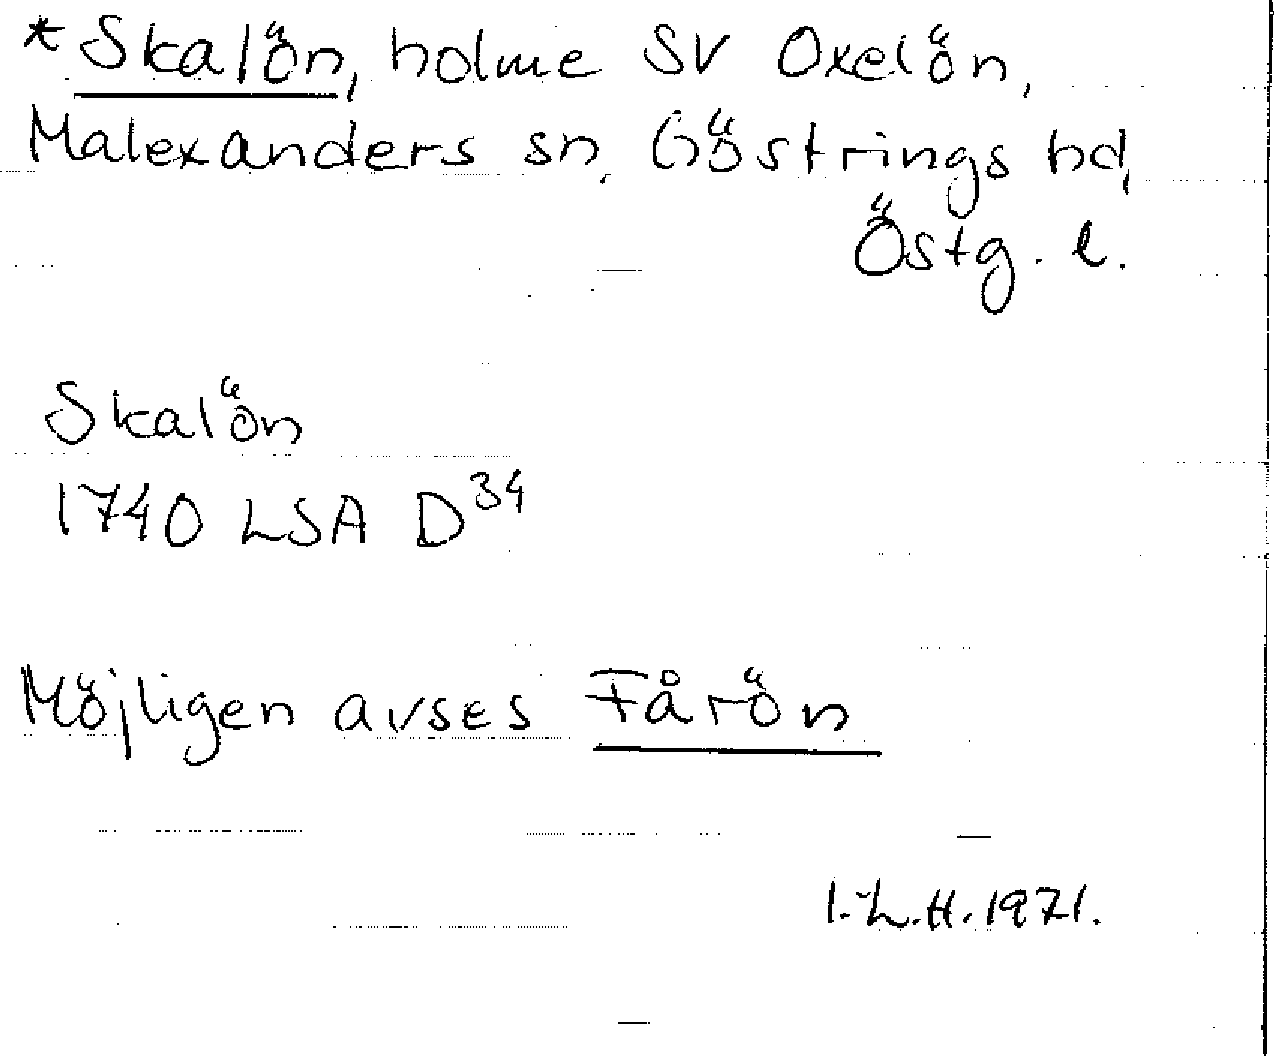 *Skalön, holme SV Oxelön,
Malexanders sn, Göstrings hd,
Östg. l.
Skalön
1740 LSA D³⁴
Möjligen avses Fårön
I.L.H. 1971.